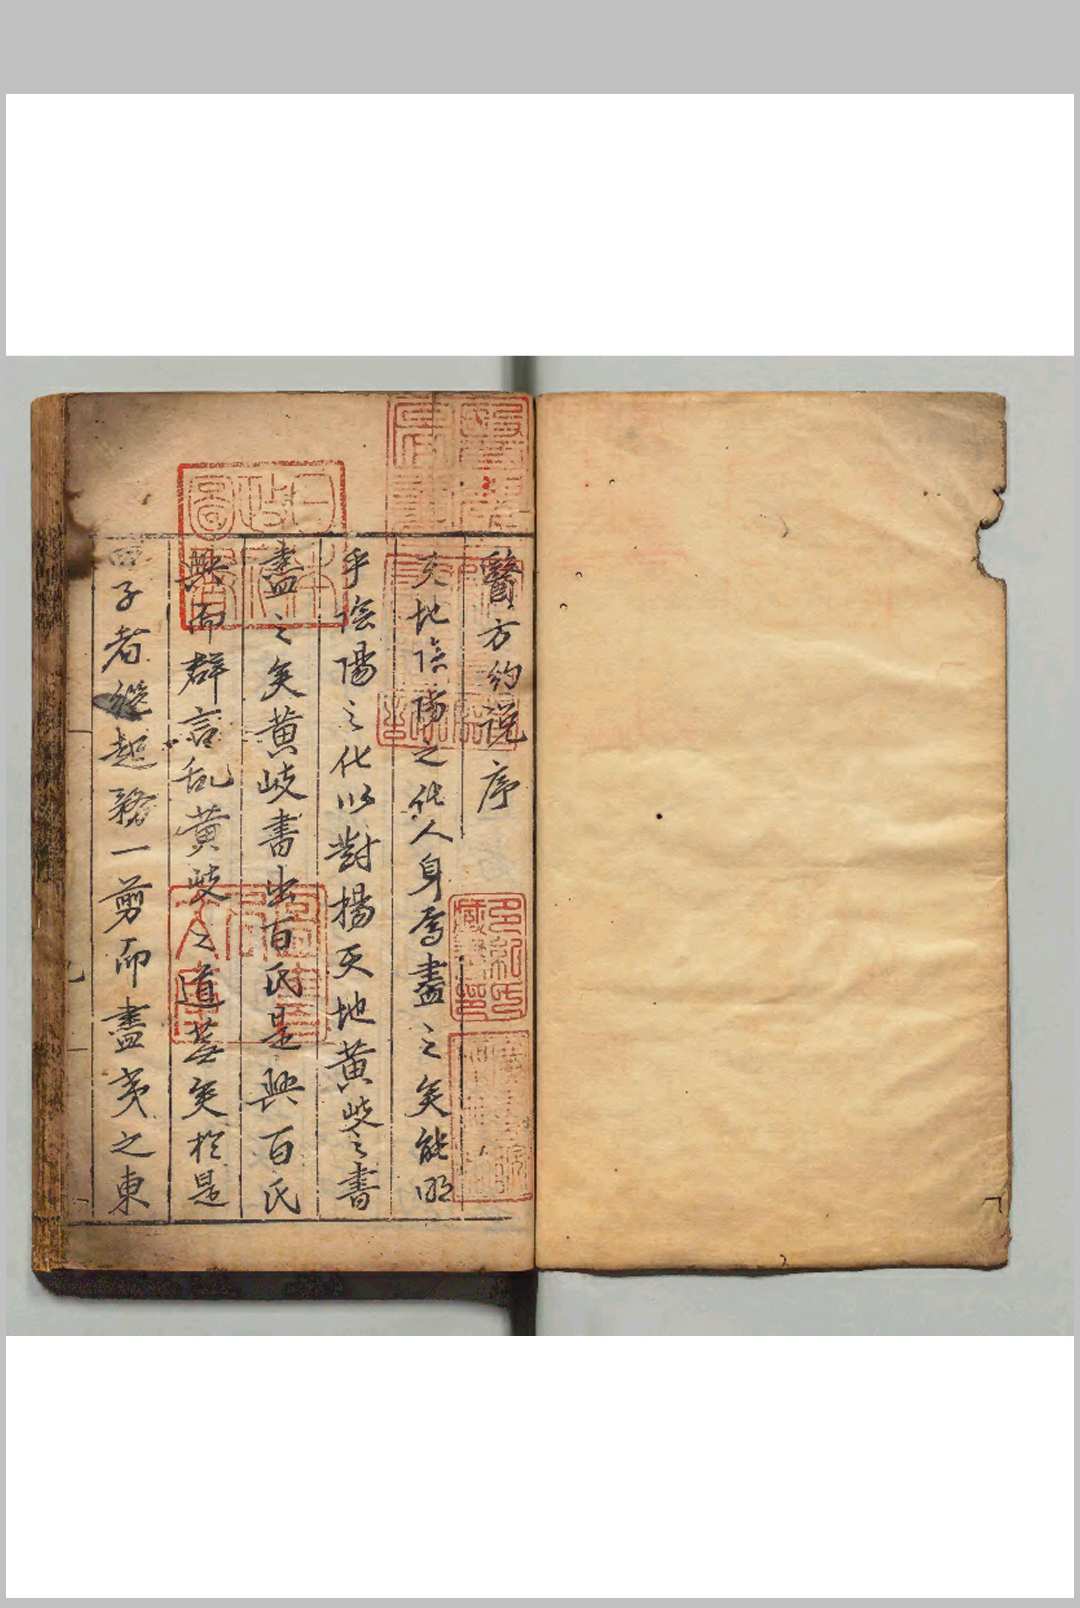 醫方約説序
天地陰陽之化人身焉盡之矣能明
乎陰陽之化以對揚天地黄岐之書
盡之矣黄岐書出百氏是興百氏
興而群言乱黄岐之道蕪矣於是
四子者継起務一剪而盡夷之東